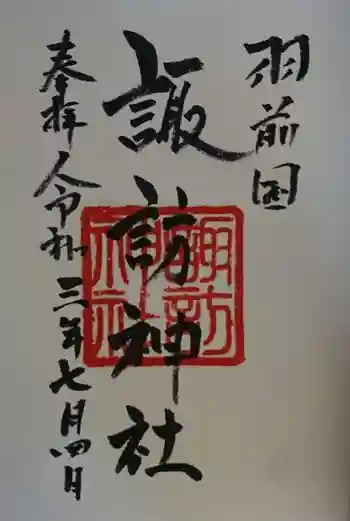 羽前国
諏訪神社
諏訪
神社
奉拝 令和三年七月四日